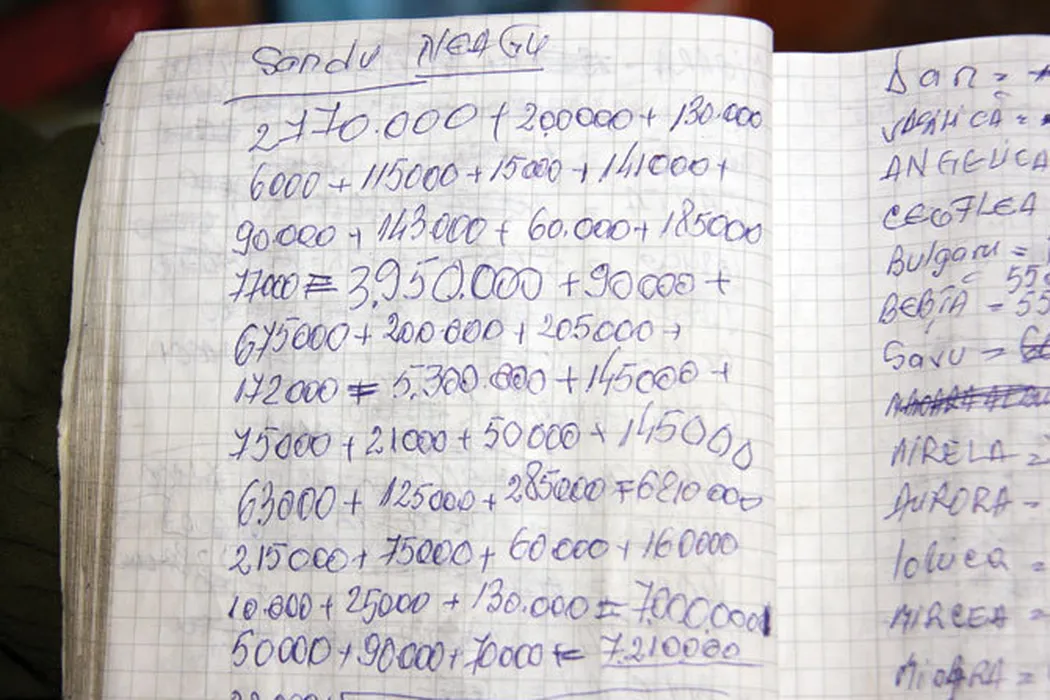 Sandu NEAGU
2170.000 + 200000 + 130.000
6000 + 115000 + 15000 + 141000 +
90.000 + 143.000 + 60.000 + 185000
77000 = 3.950.000 + 90000 +
675000 + 200.000 + 205000 +
172000 = 5.300.000 + 145000 +
75000 + 21000 + 50000 + 145000
63000 + 125000 + 285000 = 6810000
215000 + 75000 + 60000 + 160000
10.000 + 25000 + 130.000 = 7.000.000
50000 + 90000 + 70000 = 7.210000
Dan =
VASILICĂ =
ANGELICA
Bulgaru =
BEBIȚĂ = 55
Savu =
MIRELA =
AURORA =
MIRCEA =